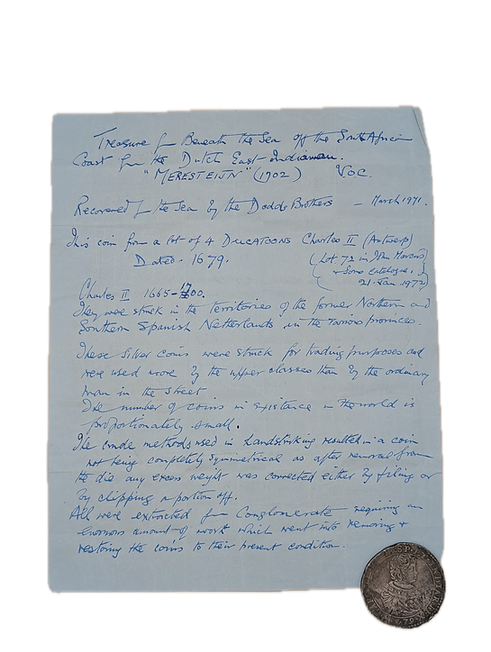 Treasure f Beneath the Sea off the South African
Coast f the Dutch East-Indiaman.
"MERESTEIJN" (1702) VOC.
Recovered f the Sea by the Dodds Brothers - March 1971.
This coin from a lot of 4 DUCATOONS Charles II (Antwerp)
Dated - 1679.
(Lot 72 in
Catalogue,
21 Jan 1972)
Charles II 1665-1700.
They were struck in the territories of the former Northern and
Southern Spanish Netherlands in the various provinces.
These silver coins were struck for trading purposes and
were used more by the upper classes than by the ordinary
man in the street
The number of coins in existance in the world is
proportionately small.
The crude methods used in handstriking resulted in a coin
not being completely symmetrical as after removal from
the die any excess weight was corrected either by filing or
by clipping a portion off.
All were extracted f Conglomerate requiring an
enormous amount of work which went into removing +
restoring the coins to their present condition.